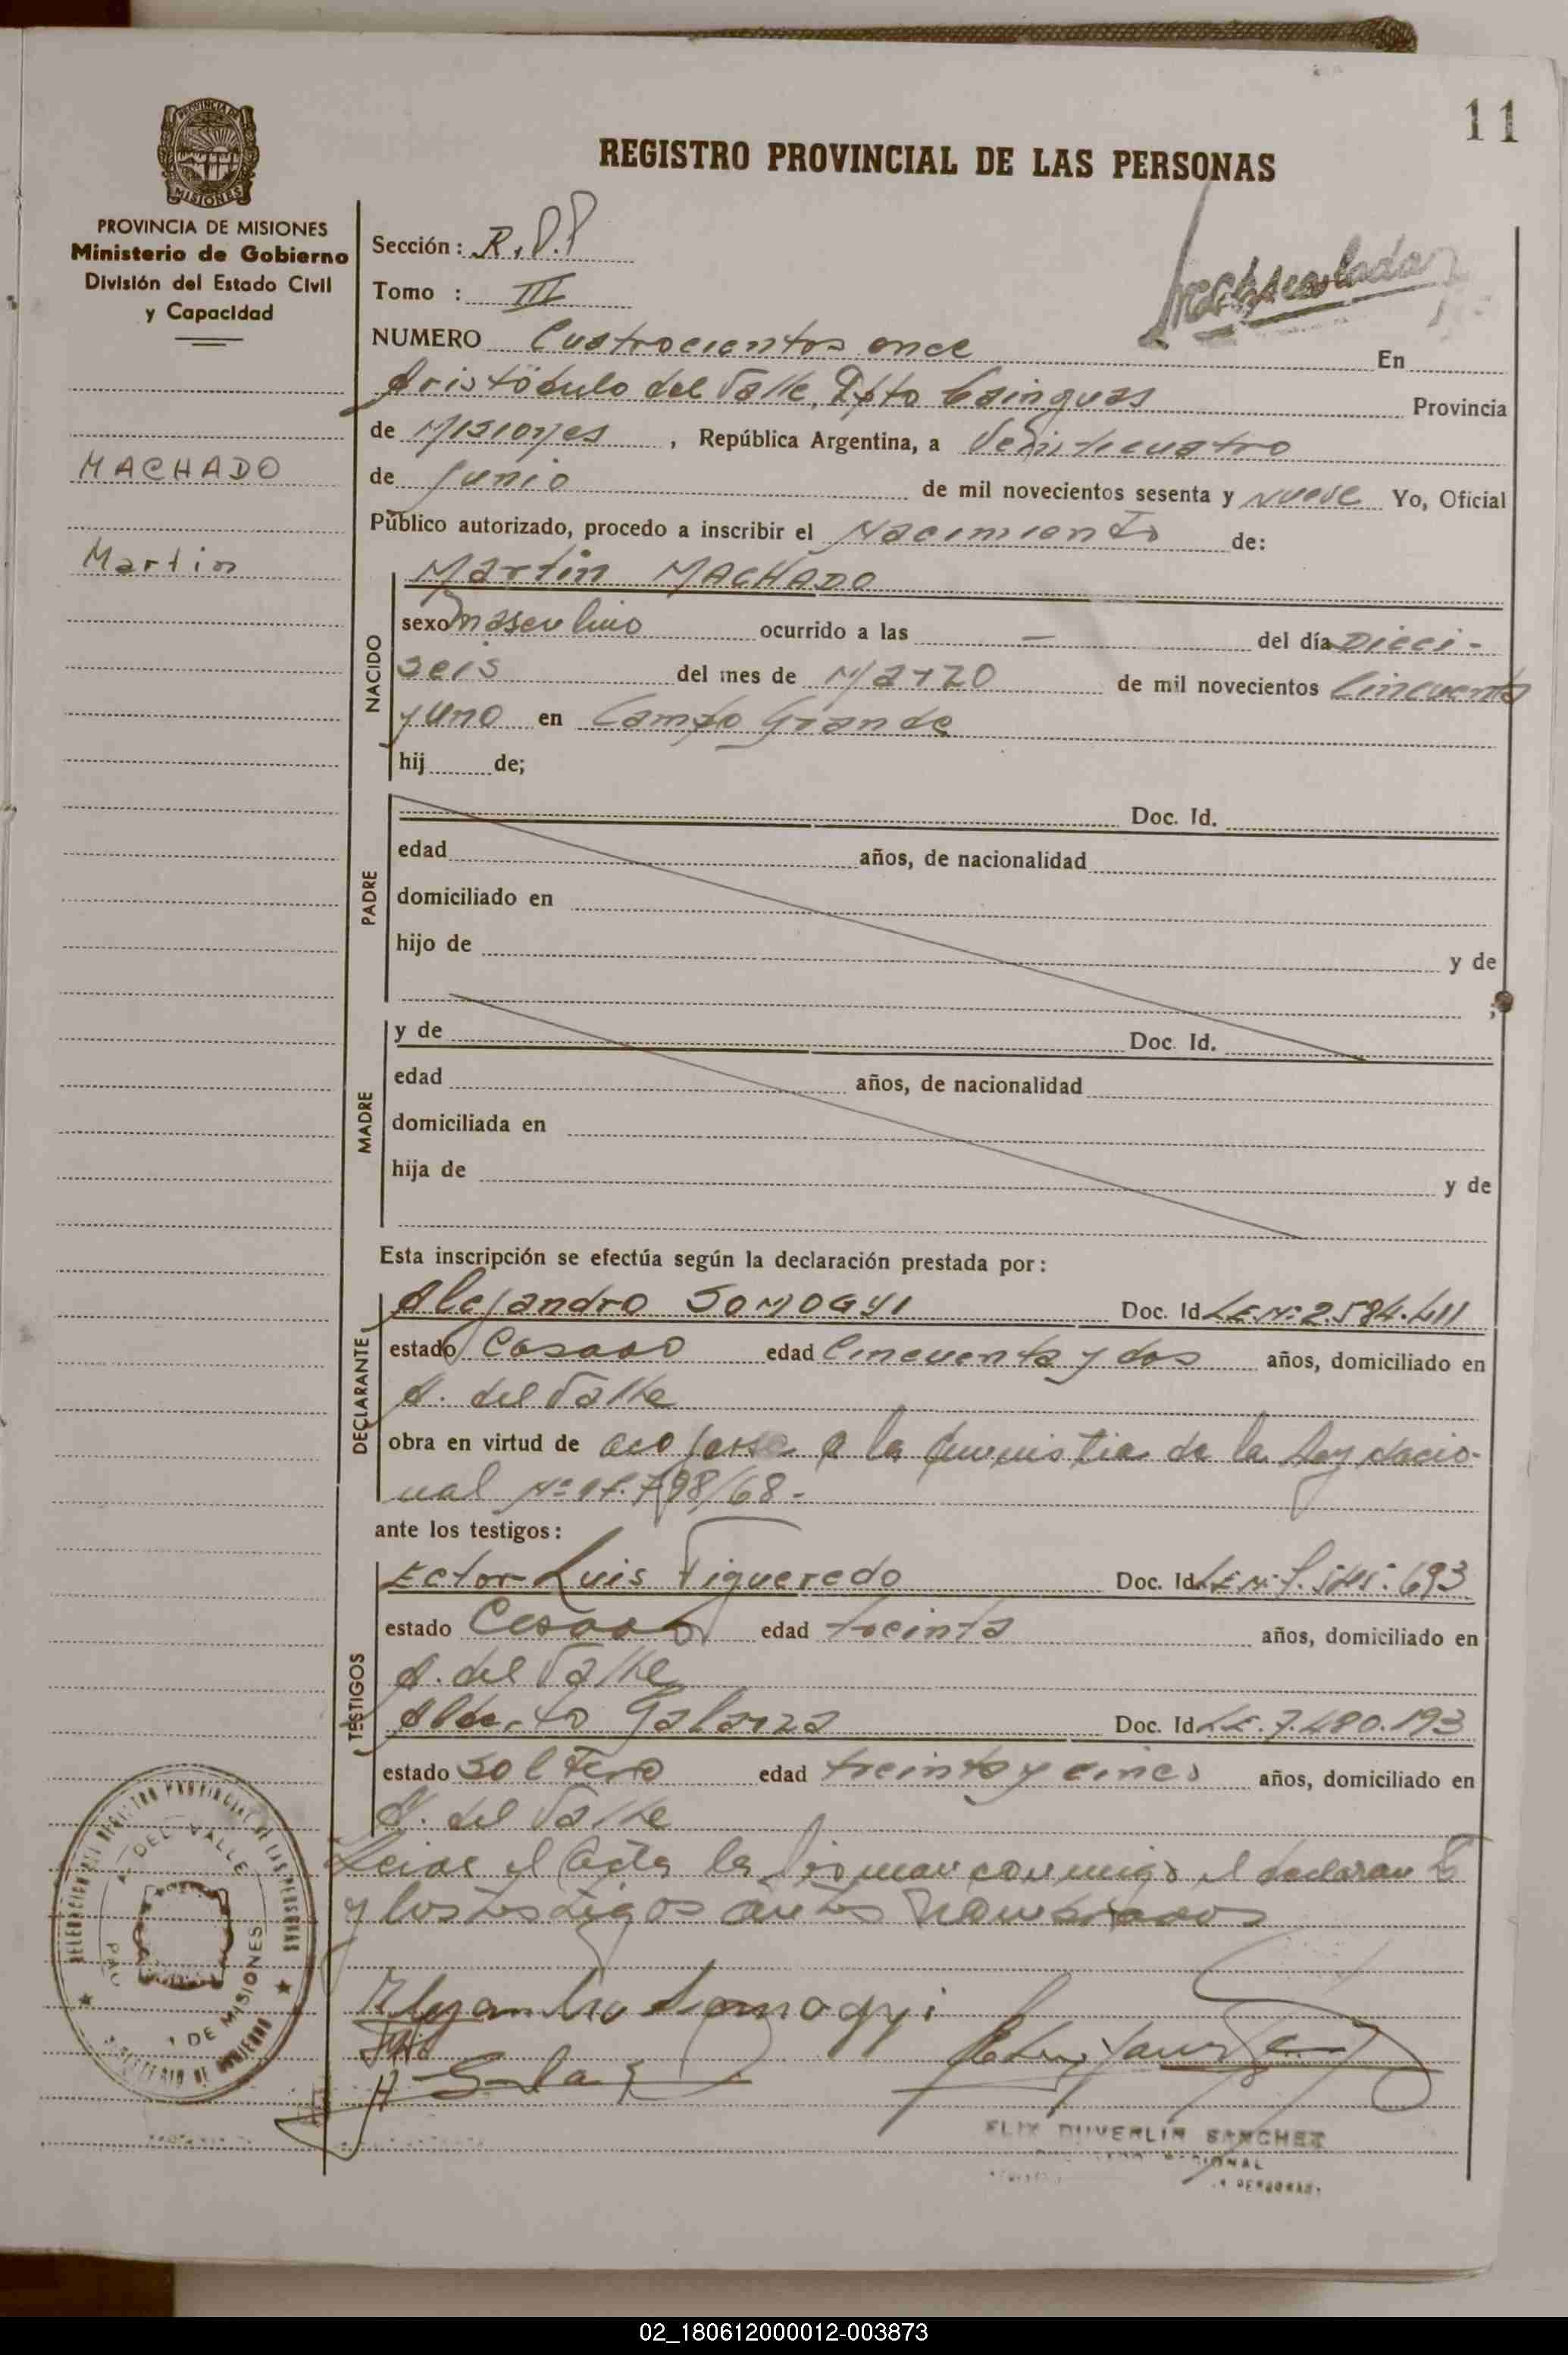 11
REGISTRO PROVINCIAL DE LAS PERSONAS
PROVINCIA DE MISIONES
Ministerio de Gobierno
División del Estado Civil
y Capacidad
MACHADO
Martin
Sección: R.P.P
Tomo : III
NUMERO Cuatrocientos once En
Aristóbulo del Valle, Dpto Cainguas Provincia
de Misiones, República Argentina, a Veinticuatro
de Junio de mil novecientos sesenta y nueve Yo, Oficial
Público autorizado, procedo a inscribir el Nacimiento de:
NACIDO
Martin MACHADO
sexo masculino ocurrido a las — del día Dieci-
seis del mes de Marzo de mil novecientos Cincuenta
y uno en Campo Grande
hij de;
PADRE
Doc. Id.
edad años, de nacionalidad
domiciliado en
hijo de y de
;
MADRE
y de Doc. Id.
edad años, de nacionalidad
domiciliada en
hija de y de
Esta inscripción se efectúa según la declaración prestada por:
DECLARANTE
Alejandro SOMOGYI Doc. Id L.E.Nº 2.584.411
estado Casado edad Cincuenta y dos años, domiciliado en
A. del Valle
obra en virtud de acojerse a la amnistia de la Ley Nacio-
nal Nº 17.798/68-
ante los testigos:
TESTIGOS
Ector Luis Figueredo Doc. Id L.E.Nº
estado Casado edad treinta años, domiciliado en
A. del Valle
Alberto Galarza Doc. Id L.E. 7.480.193
estado Soltero edad treinta y cinco años, domiciliado en
A. del Valle
Leida el Acta la firman conmigo el declarante
y los testigos antes nombrados
Alejandro Somogyi
DELEGACION DEL REGISTRO PROVINCIAL DE LAS PERSONAS
A. DEL VALLE
DE MISIONES
MINISTERIO DE GOBIERNO
DUVERLIN SANCHEZ
02_180612000012-003873